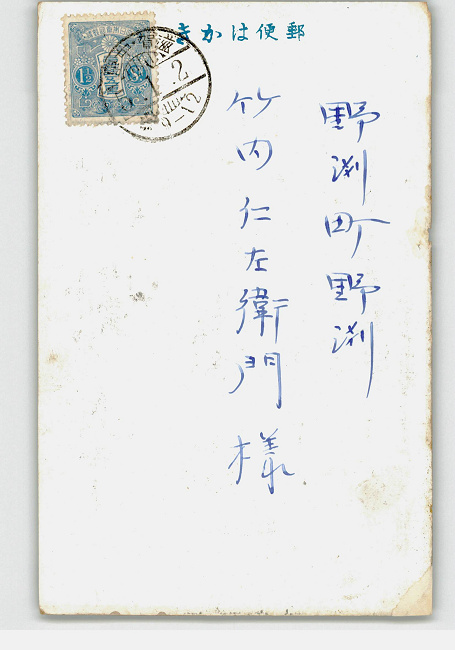 郵便はかき
野渕町野渕
竹内仁左衛門様
1½